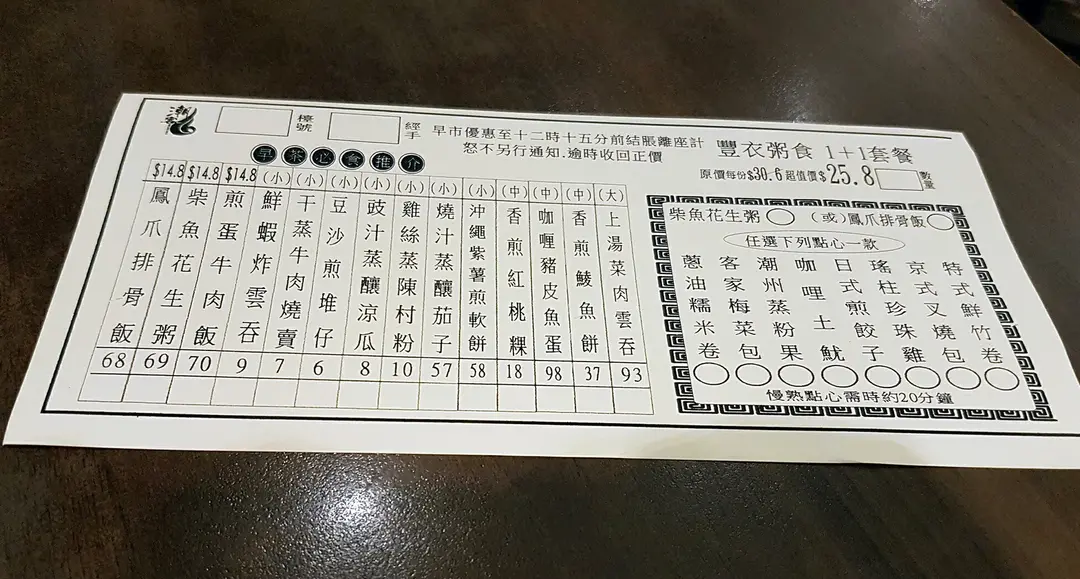 潮
檯號
經手
早市優惠至十二時十五分前結賬離座計
恕不另行通知.逾時收回正價
早茶必食推介
$14.8 鳳爪排骨飯 68
$14.8 柴魚花生粥 69
$14.8 煎蛋牛肉飯 70
(小) 鮮蝦炸雲吞 9
(小) 干蒸牛肉燒賣 7
(小) 豆沙煎堆仔 6
(小) 豉汁蒸釀涼瓜 8
(小) 雞絲蒸陳村粉 10
(小) 燒汁蒸釀茄子 57
(小) 沖繩紫薯煎軟餅 58
(中) 香煎紅桃粿 18
(中) 咖喱豬皮魚蛋 98
(中) 香煎鯪魚餅 37
(大) 上湯菜肉雲吞 93
豐衣粥食 1+1套餐
原價每份$30.6 超值價$25.8
數量
柴魚花生粥
(或)鳳爪排骨飯
任選下列點心一款
蔥油糯米卷
客家梅菜包
潮州蒸粉果
咖哩土魷
日式煎餃子
瑤柱珍珠雞
京式叉燒包
特式鮮竹卷
慢熟點心需時約20分鐘